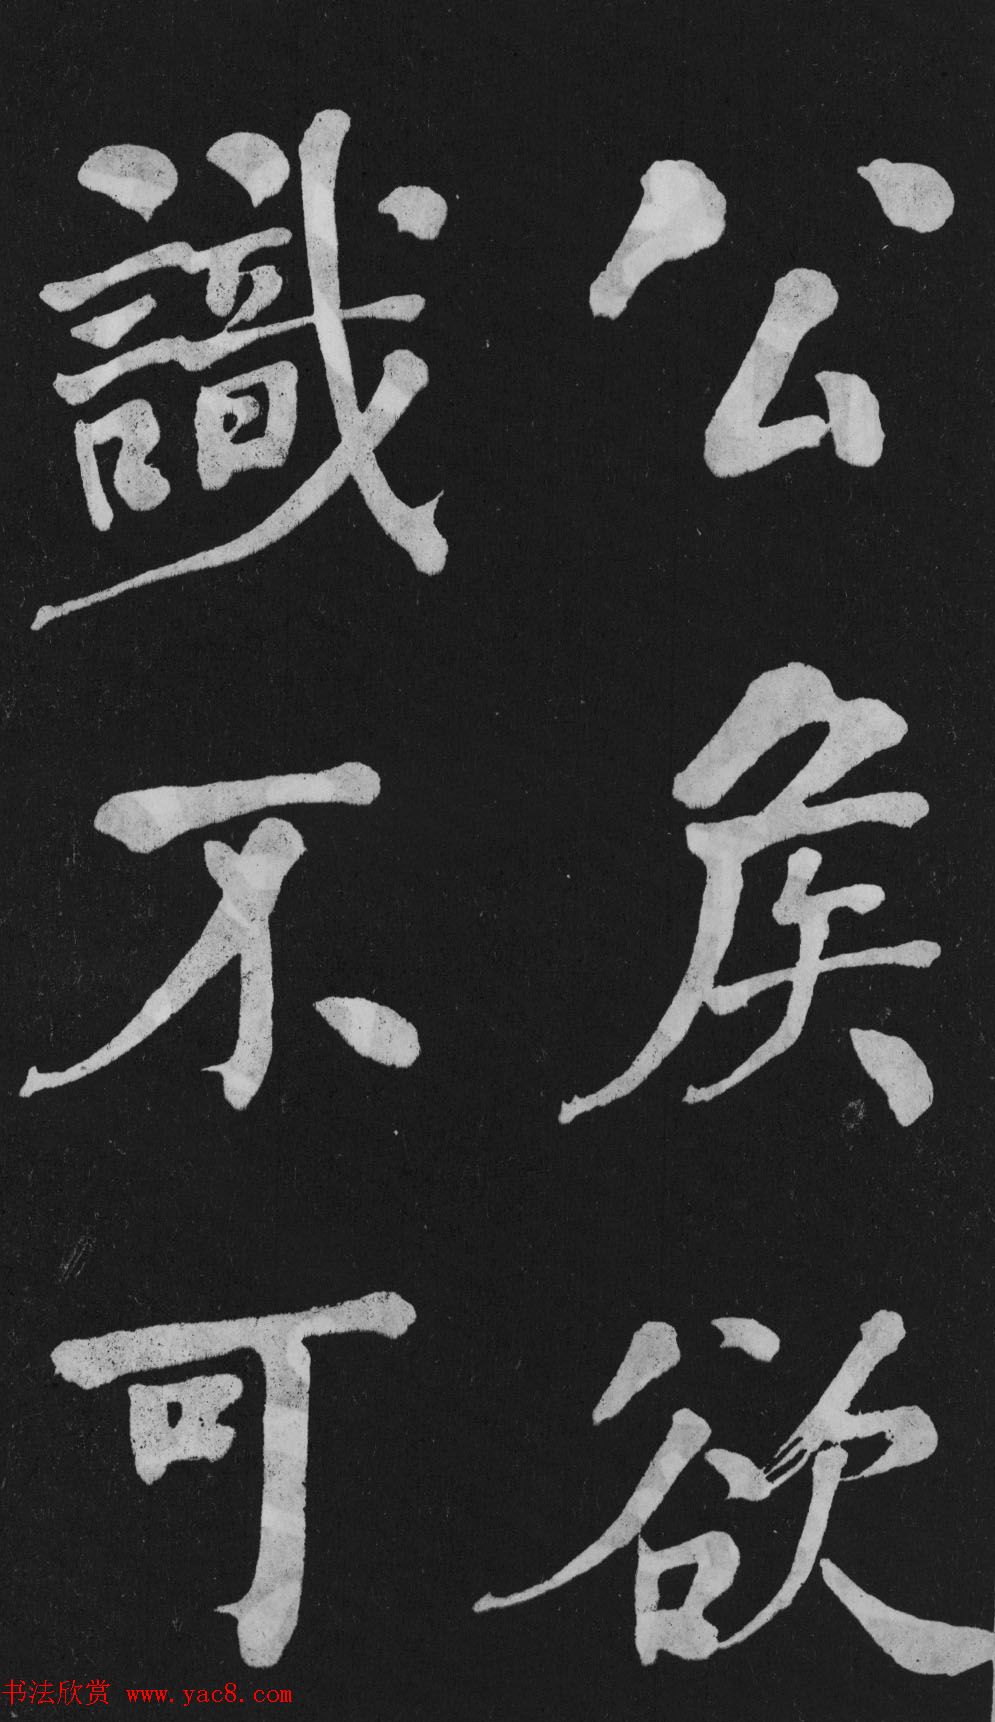 公矦欲
識不可
书法欣赏 www.yac8.com